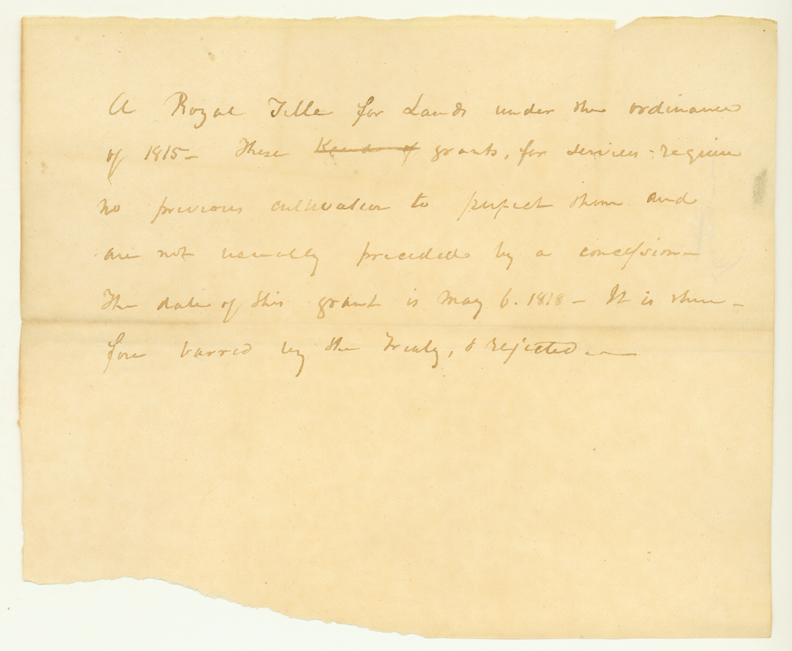 A Royal Title for Lands under the ordinance
of 1815 - These Kinds of grants, for services - require
no previous cultivation to perfect them and
are not usually preceded by a concession -
The date of this grant is May 6. 1818 - It is there -
fore barred by the Treaty, & rejected -